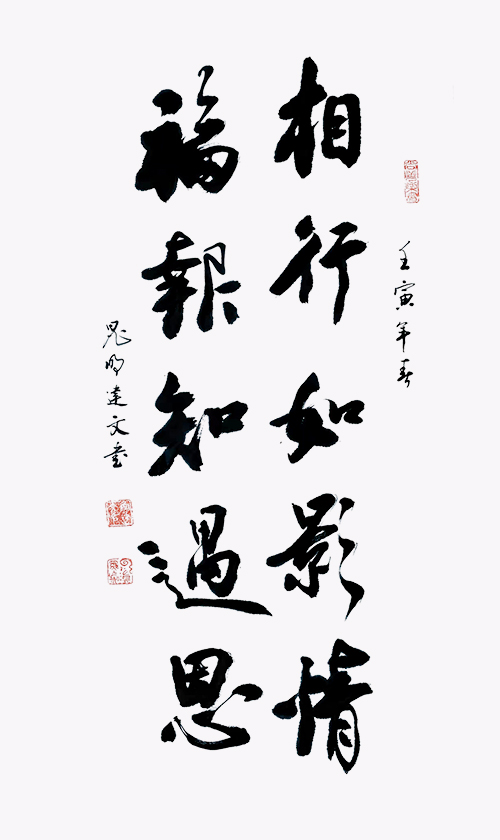 壬寅年春
相行如影情
福報知遇恩
晁明達文書